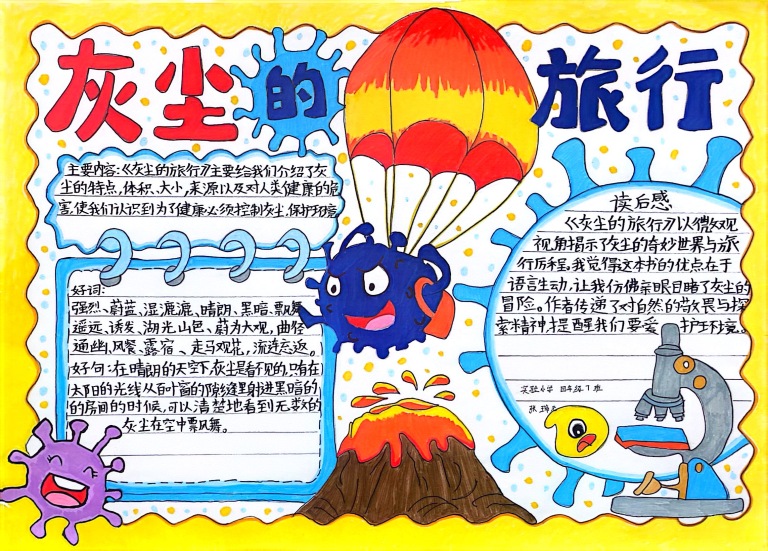 灰尘的旅行
主要内容:《灰尘的旅行》主要给我们介绍了灰
尘的特点,体积、大小,来源以及对人类健康的危
害,使我们认识到为了健康必须控制灰尘,保护环境
好词:
强烈、蔚蓝、湿漉漉、晴朗、黑暗、飘舞
遥远、诱发、湖光山色、蔚为大观,曲径
通幽、风餐、露宿、走马观花,流连忘返。
好句:在晴朗的天空下,灰尘是看不见的,只有在
太阳的光线从百叶窗的隙缝里射进黑暗的
的房间的时候,可以清楚地看到无数的
灰尘在空中飘舞。
读后感
《灰尘的旅行》以微观
视角揭示了灰尘的奇妙世界与旅
行历程,我觉得这本书的优点在于
语言生动,让我仿佛亲眼目睹了灰尘的
冒险。作者传递了对自然的敬畏与探
索精神,提醒我们要爱护环境。
实验小学 四年级7班